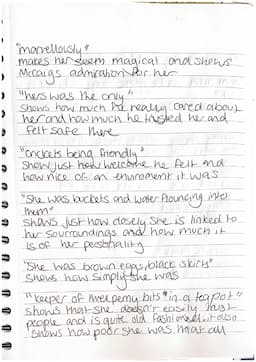 "marvellously"
makes her seem magical and shows
McCaigs admiration for her
"hers was the only"
shows how much he really cared about
her and how much he trusted her and
felt safe there
"crickets being friendly"
Shows just how welcome he felt and
how nice of an enviroment it was
"She was buckets and water flouncing into
them"
shows just how closely she is linked to
her sourroundings and how much it
is of her pesonality
"She was brown eggs, black skirts"
shows how simply she was
"keeper of threepenny bits "in a teapot"
shows that she doesn't easily trust
people and is quite old fashioned, it also
shows how poor she was that all